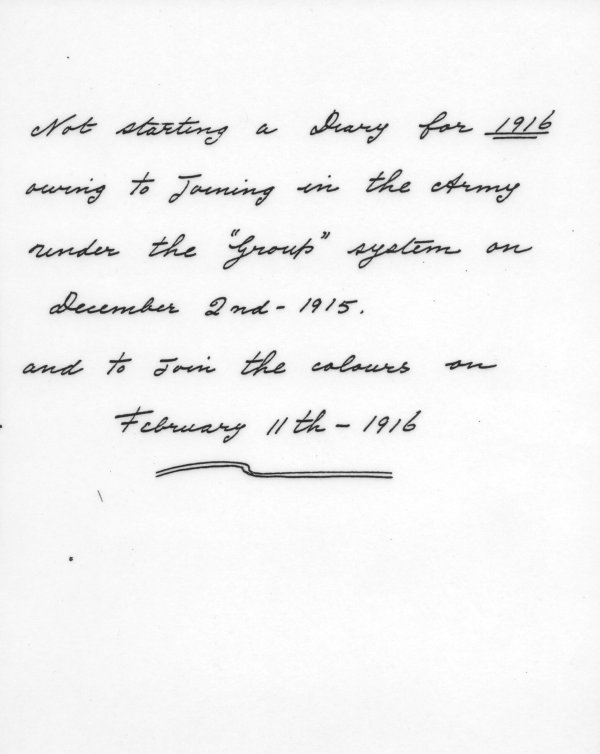 Not starting a Diary for 1916
owing to Joining in the Army
under the "Group" system on
December 2nd - 1915.
and to Join the colours on
February 11th - 1916